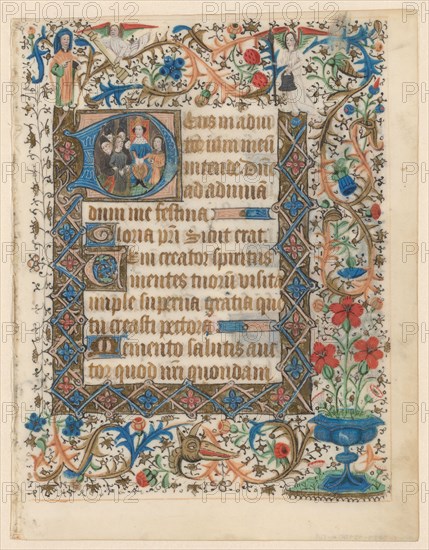 Deus in adiu
toriu meu
intende Dn̄e
ad adiuuā
dum me festina
Gloria pr̄i Sicut erat
Veni creator spiritus
mentes tuorū visita
imple superna grātia que
tu creasti pectora
Memento salutis auc
tor quod nr̄i quondam
PHOTO12